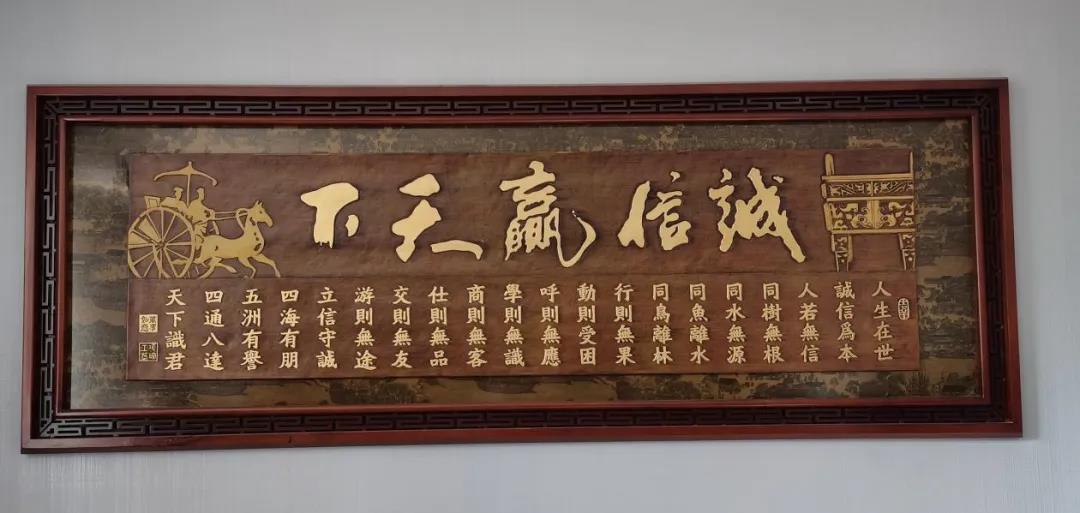 誠信贏天下
人生在世
誠信爲本
人若無信
同樹無根
同水無源
同魚離水
同鳥離林
行則無果
動則受困
呼則無應
學則無識
商則無客
仕則無品
交則無友
游則無途
立信守誠
四海有朋
五洲有譽
四通八達
天下識君